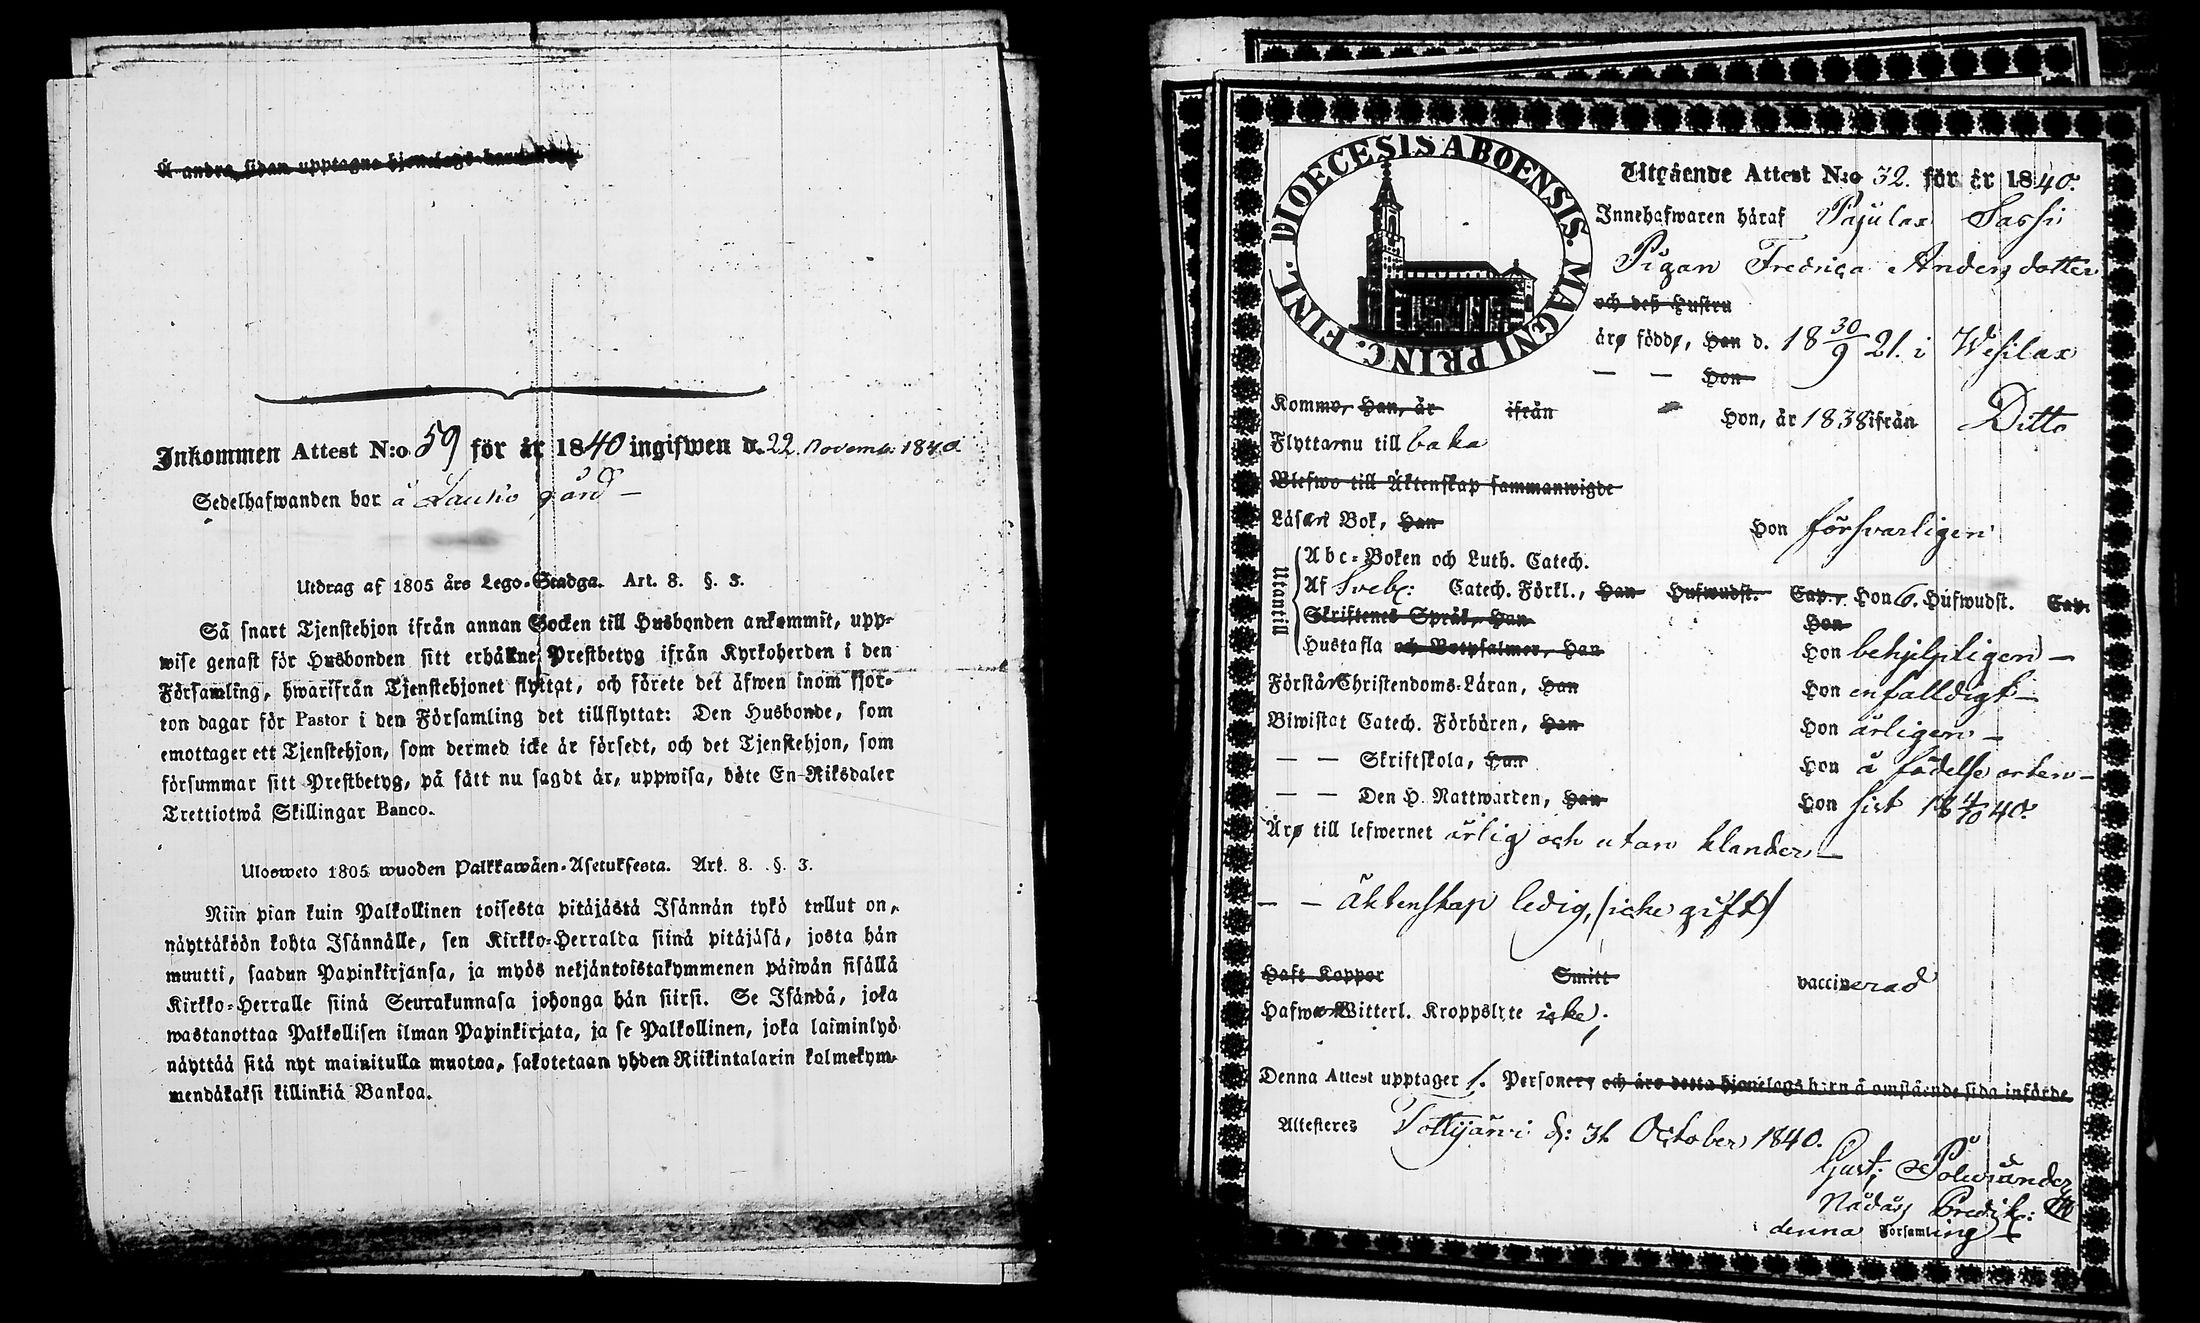 Å andra sidan upptagne hjonelags barn
Inkommen Attest N:o 59 för år 1840 ingifwen d. 22 Novemb. 1840.
Sedelhafwanden bor å Laukо gård —
Utdrag af 1805 års Lego-Stadga. Art. 8. §. 3.
Så snart Tjenstehjon ifrån annan Socken till Husbonden ankommit, upp-
wise genast för Husbonden sitt erhållne Prestbetyg ifrån Kyrkoherden i den
Församling, hwarifrån Tjenstehjonet flyttat, och förete det äfwen inom fjor-
ton dagar för Pastor i den Församling det tillflyttat: Den Husbonde, som
emottager ett Tjenstehjon, som dermed icke är försedt, och det Tjenstehjon, som
försummar sitt Prestbetyg, på sätt nu sagdt är, uppwisa, böte En Riksdaler
Trettiotwå Skillingar Banco.
Ulosweto 1805 wuoden Palkkawäen-Asetuksesta. Art. 8. §. 3.
Niin pian kuin Palkollinen toisesta pitäjästä Isännän tykö tullut on,
näyttäköön kohta Isännälle, sen Kirkko-Herralda siinä pitäjäsä, josta hän
muutti, saadun Papinkirjansa, ja myös neljäntoistakymmenen päiwän sisällä
Kirkko-Herralle siinä Seurakunnasa johonga hän siirsi. Se Isändä, joka
wastanottaa Palkollisen ilman Papinkirjata, ja se Palkollinen, joka laiminlyö
näyttää sitä nyt mainitulla muotoa, sakotetaan yhden Riikintalarin kolmekym-
mendäkaksi killinkiä Bankoa.
DIOECESIS ABOENSIS. MAGNI PRINC. FINL.
Utgående Attest N:o 32. för år 1840.
Innehafwaren häraf Pajulax Sassi
Pigan Fredrica Andersdotter
och deß Hustru
äro födde, Han d. 18 30/9 21. i Wesilax
— — Hon
Komme, Han, år ifrån Hon, år 1838 ifrån Ditto
Flytta nu till baka
Blefwo till Äktenskap sammanwigde
Läsa i Bok, Han Hon försvarligen
Utantill
Abc-Boken och Luth. Catech.
Af Sveb: Catech. Förkl., Han Hufwudst. Cap., Hon 6. Hufwudst. Cap.
Skriftenes Språk, Han Hon
Hustafla och Botpsalmer, Han Hon behjelpligen —
Förstår Christendoms-Läran, Han Hon enfalldigt —
Biwistat Catech. Förhören, Han Hon årligen —
— — Skriftskola, Han Hon å födelse orten —
— — Den H. Nattwarden, Han Hon sist 18 4/10 40.
Äro till lefwernet ärlig och utan klander —
— — äktenskap ledig, (icke gift)
Haft Koppor Smitt vaccinerad
Hafwa Witterl. Kroppslyte icke.
Denna Attest upptager 1. Personer, och äro detta hjonelags barn å omstående sida införde.
Attesteres Tottijärvi d: 31 October 1840.
Gust:
Nådårs Predik:
denna Församling —